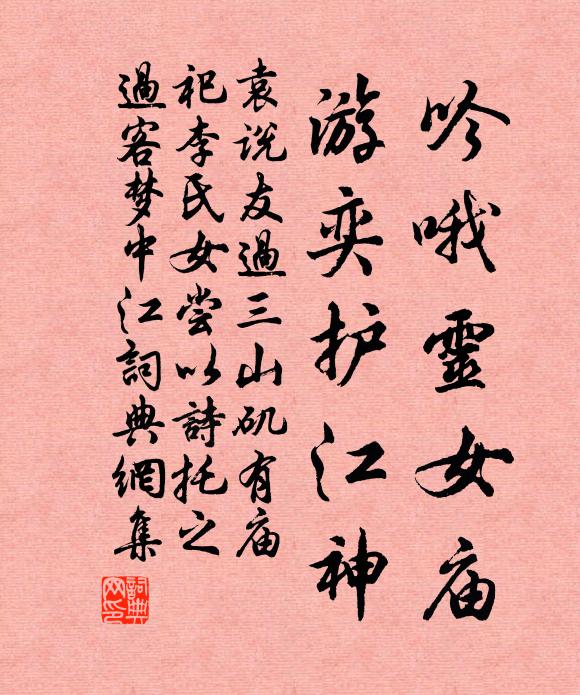 吟哦靈女庙
游奕护江神
袁说友過三山矶有庙
祀李氏女尝以詩托之
過客梦中江詞典網集
詞典网印